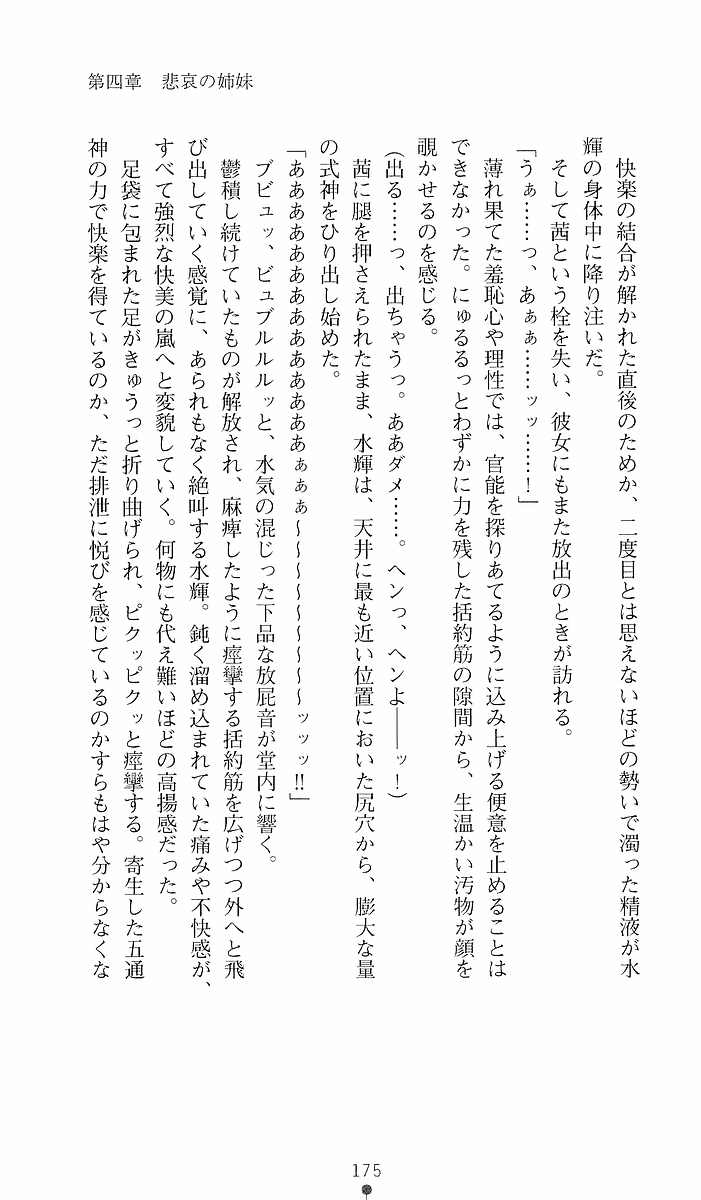 第四章　悲哀の姉妹
　快楽の結合が解かれた直後のためか、二度目とは思えないほどの勢いで濁った精液が水
輝の身体中に降り注いだ。
　そして茜という栓を失い、彼女にもまた放出のときが訪れる。
「うぁ……っ、あぁぁ……ッッ……！」
　薄れ果てた羞恥心や理性では、官能を探りあてるように込み上げる便意を止めることは
できなかった。にゅるるっとわずかに力を残した括約筋の隙間から、生温かい汚物が顔を
覗かせるのを感じる。
（出る……っ、出ちゃうっ。ああダメ……。ヘンっ、ヘンよ――ッ！）
　茜に腿を押さえられたまま、水輝は、天井に最も近い位置においた尻穴から、膨大な量
の式神をひり出し始めた。
「ああああああああああああああぁぁぁ～～～～～～～～～ッッッ!!」
　ブビュッ、ビュブルルルッと、水気の混じった下品な放屁音が堂内に響く。
　鬱積し続けていたものが解放され、麻痺したように痙攣する括約筋を広げつつ外へと飛
び出していく感覚に、あられもなく絶叫する水輝。鈍く溜め込まれていた痛みや不快感が、
すべて強烈な快美の嵐へと変貌していく。何物にも代え難いほどの高揚感だった。
　足袋に包まれた足がきゅうっと折り曲げられ、ピクッピクッと痙攣する。寄生した五通
神の力で快楽を得ているのか、ただ排泄に悦びを感じているのかすらもはや分からなくな
175